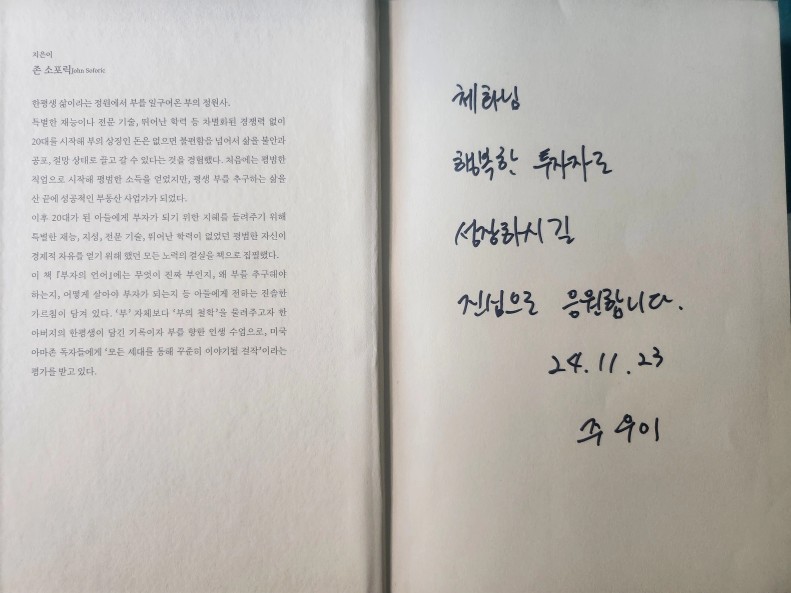 지은이
존 소포릭John Soforic
한평생 삶이라는 정원에서 부를 일구어온 부의 정원사.
특별한 재능이나 전문 기술, 뛰어난 학력 등 차별화된 경쟁력 없이
20대를 시작해 부의 상징인 돈은 없으면 불편함을 넘어서 삶을 불안과
공포, 절망 상태로 끌고 갈 수 있다는 것을 경험했다. 처음에는 평범한
직업으로 시작해 평범한 소득을 얻었지만, 평생 부를 추구하는 삶을
산 끝에 성공적인 부동산 사업가가 되었다.
이후 20대가 된 아들에게 부자가 되기 위한 지혜를 들려주기 위해
특별한 재능, 지성, 전문 기술, 뛰어난 학력이 없었던 평범한 자신이
경제적 자유를 얻기 위해 했던 모든 노력의 결실을 책으로 집필했다.
이 책 『부자의 언어』에는 무엇이 진짜 부인지, 왜 부를 추구해야
하는지, 어떻게 살아야 부자가 되는지 등 아들에게 전하는 진솔한
가르침이 담겨 있다. ‘부’ 자체보다 ‘부의 철학’을 물려주고자 한
아버지의 한평생이 담긴 기록이자 부를 향한 인생 수업으로, 미국
아마존 독자들에게 ‘모든 세대를 통해 꾸준히 이야기될 걸작’이라는
평가를 받고 있다.
체화님
행복한 투자자로
성장하시길
진심으로 응원합니다.
24.11.23
주우이